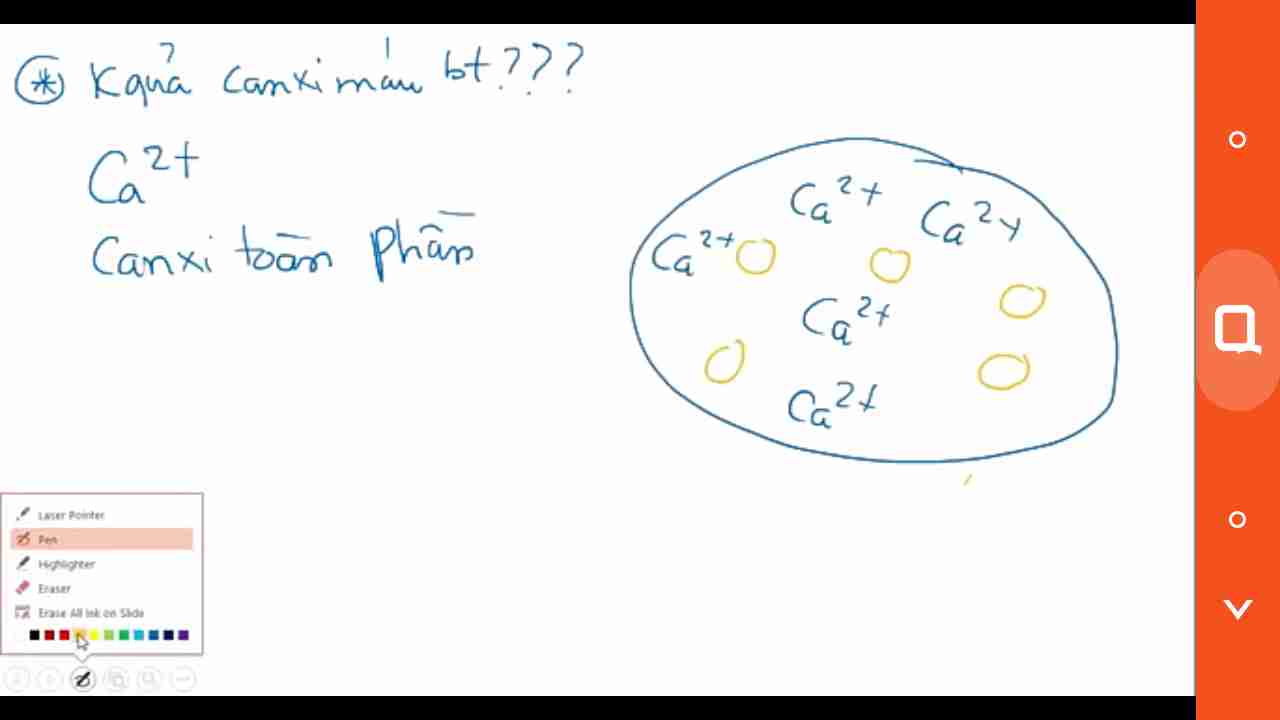 * Kquả canxi máu bt???
Ca2+
Canxi toàn phần
Ca2+
Ca2+
Ca2+
Ca2+
Ca2+
Laser Pointer
Pen
Highlighter
Eraser
Erase All Ink on Slide